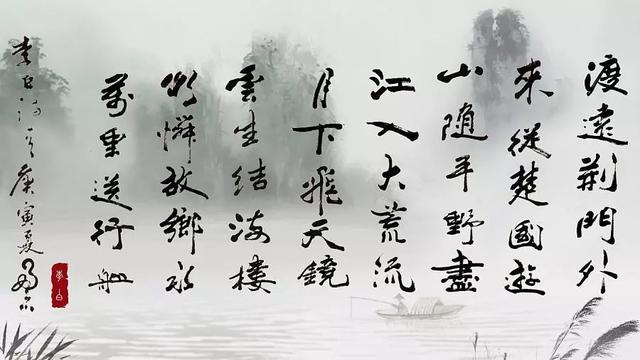 渡遠荆門外
來從楚國遊
山随平野盡
江入大荒流
月下飛天鏡
雲生結海樓
仍憐故鄉水
萬里送行
李白詩一首庚寅夏
李白